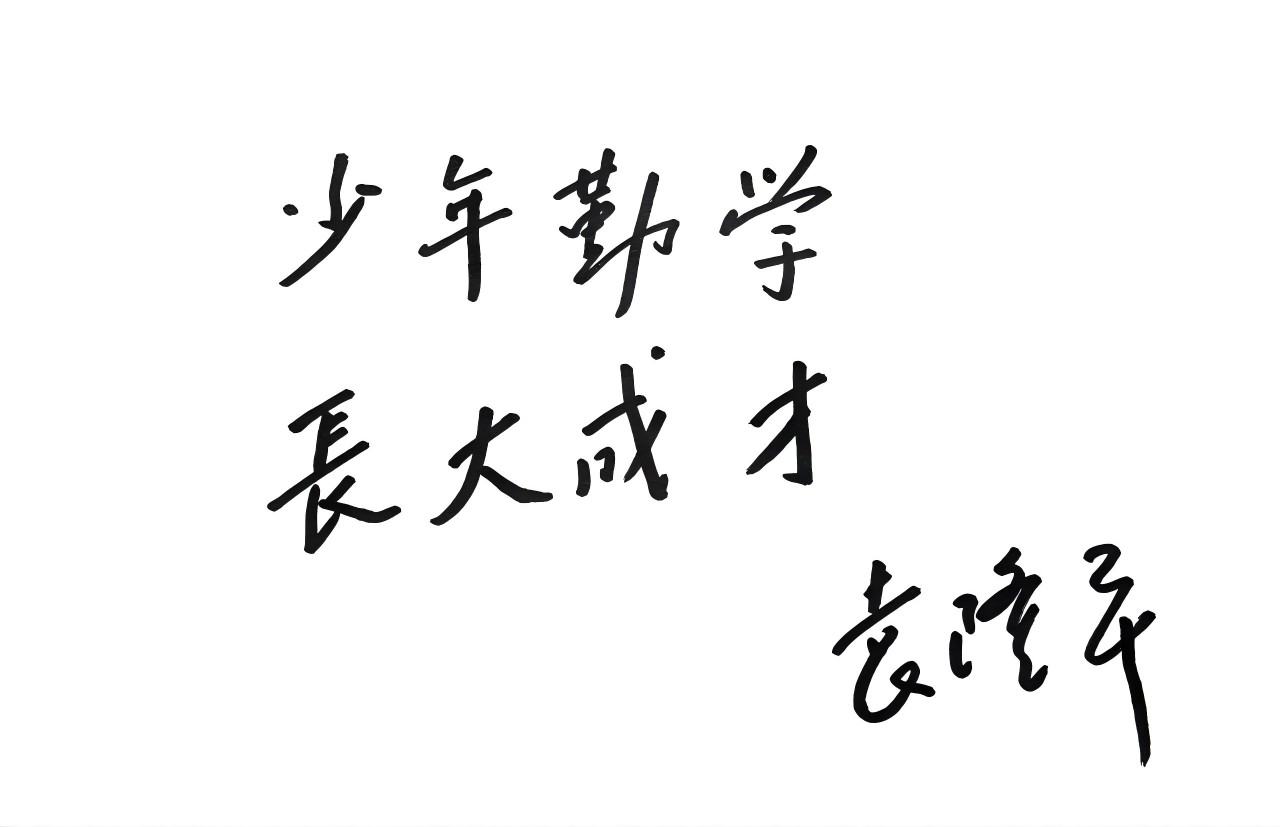 少年勤学
長大成才
袁隆平